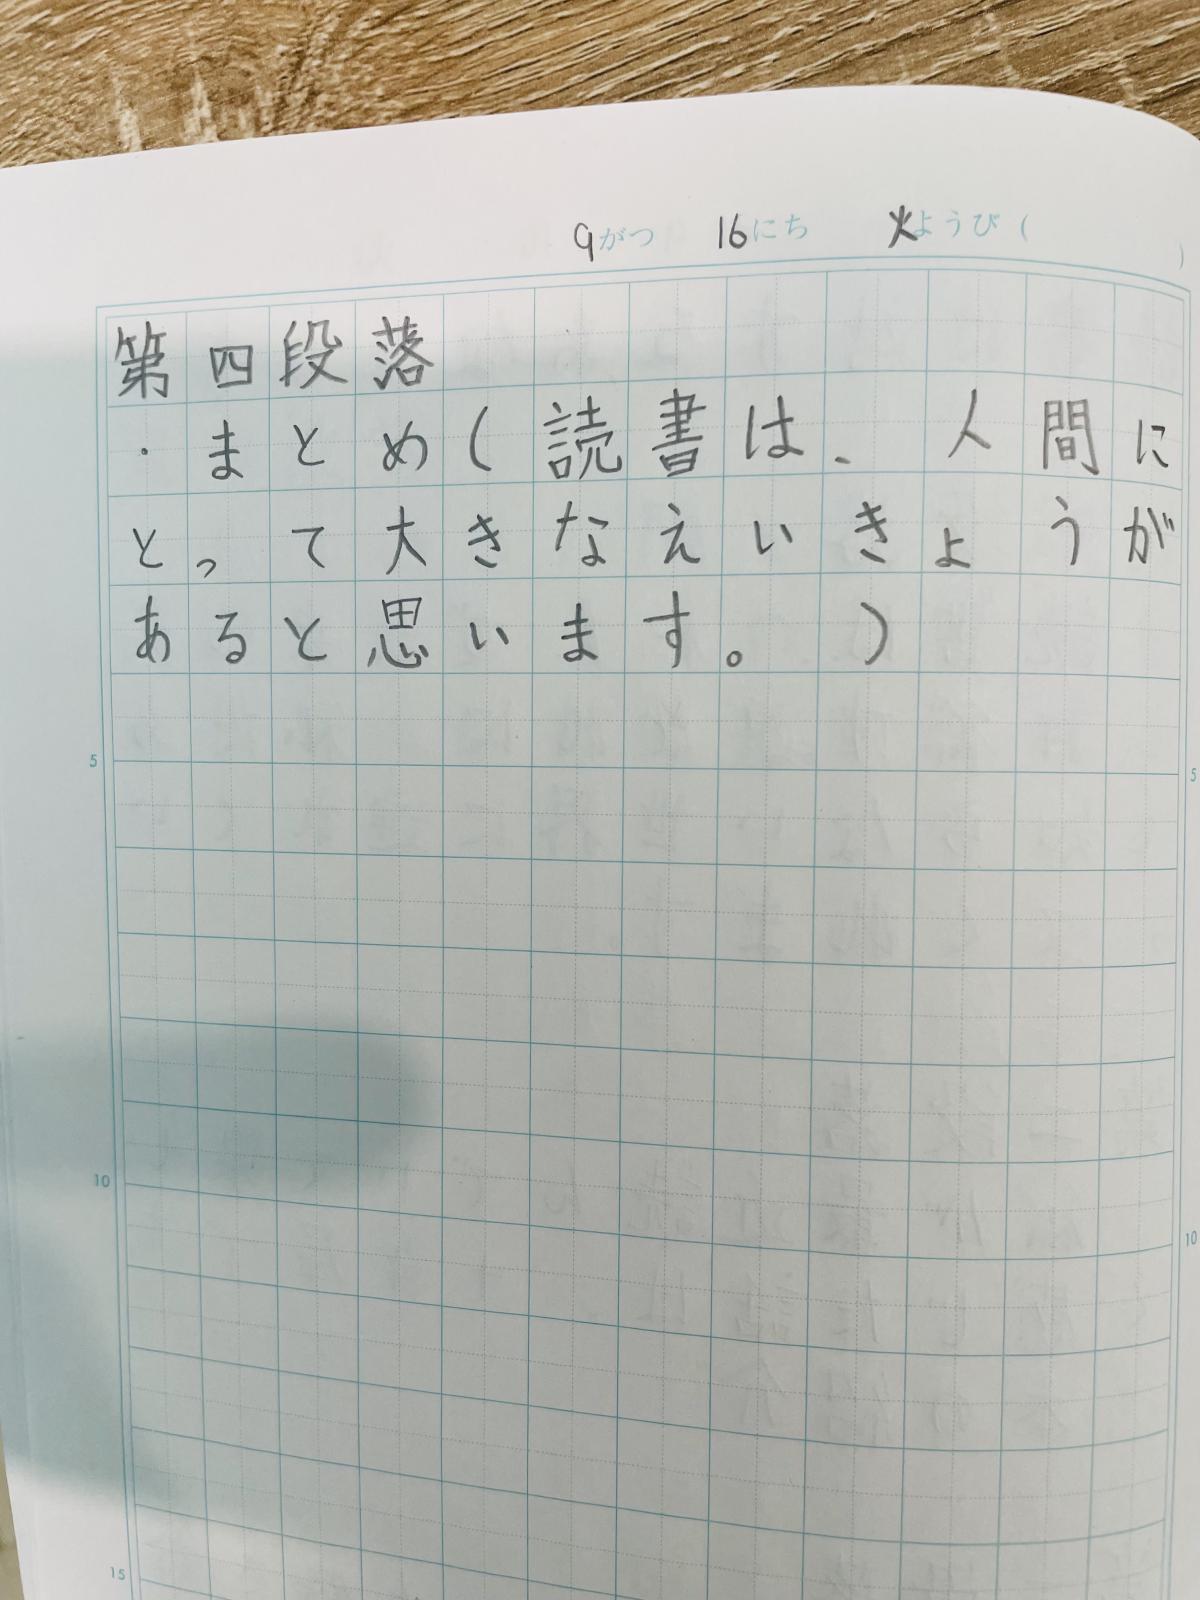 9がつ 16にち 火ようび( )
第四段落
・まとめ(読書は、人間に
とって大きなえいきょうが
あると思います。)
5
5
10
10
15